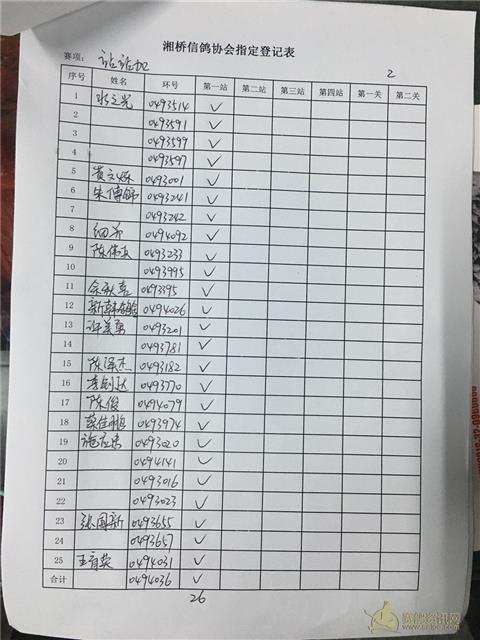 湘桥信鸽协会指定登记表
赛项： 站站加 2
序号 姓名 环号 第一站 第二站 第三站 第四站 第一关 第二关
1 0493514 ✓
2 0493591 ✓
3 0493599 ✓
4 0493597 ✓
5 0493001 ✓
6 0493241 ✓
7 0493242 ✓
8 0494092 ✓
9 0493233 ✓
10 0493995 ✓
11 余秋喜 0493395 ✓
12 0494026 ✓
13 0493201 ✓
14 0493781 ✓
15 陈泽杰 0493182 ✓
16 李创达 0493770 ✓
17 陈俊 0494079 ✓
18 蔡佳鹏 0493974 ✓
19 0493020 ✓
20 0494141 ✓
21 0493016 ✓
22 0493023 ✓
23 张国新 0493655 ✓
24 0493657 ✓
25 0494031 ✓
合计 0494036 ✓
26
赛鸽资讯网